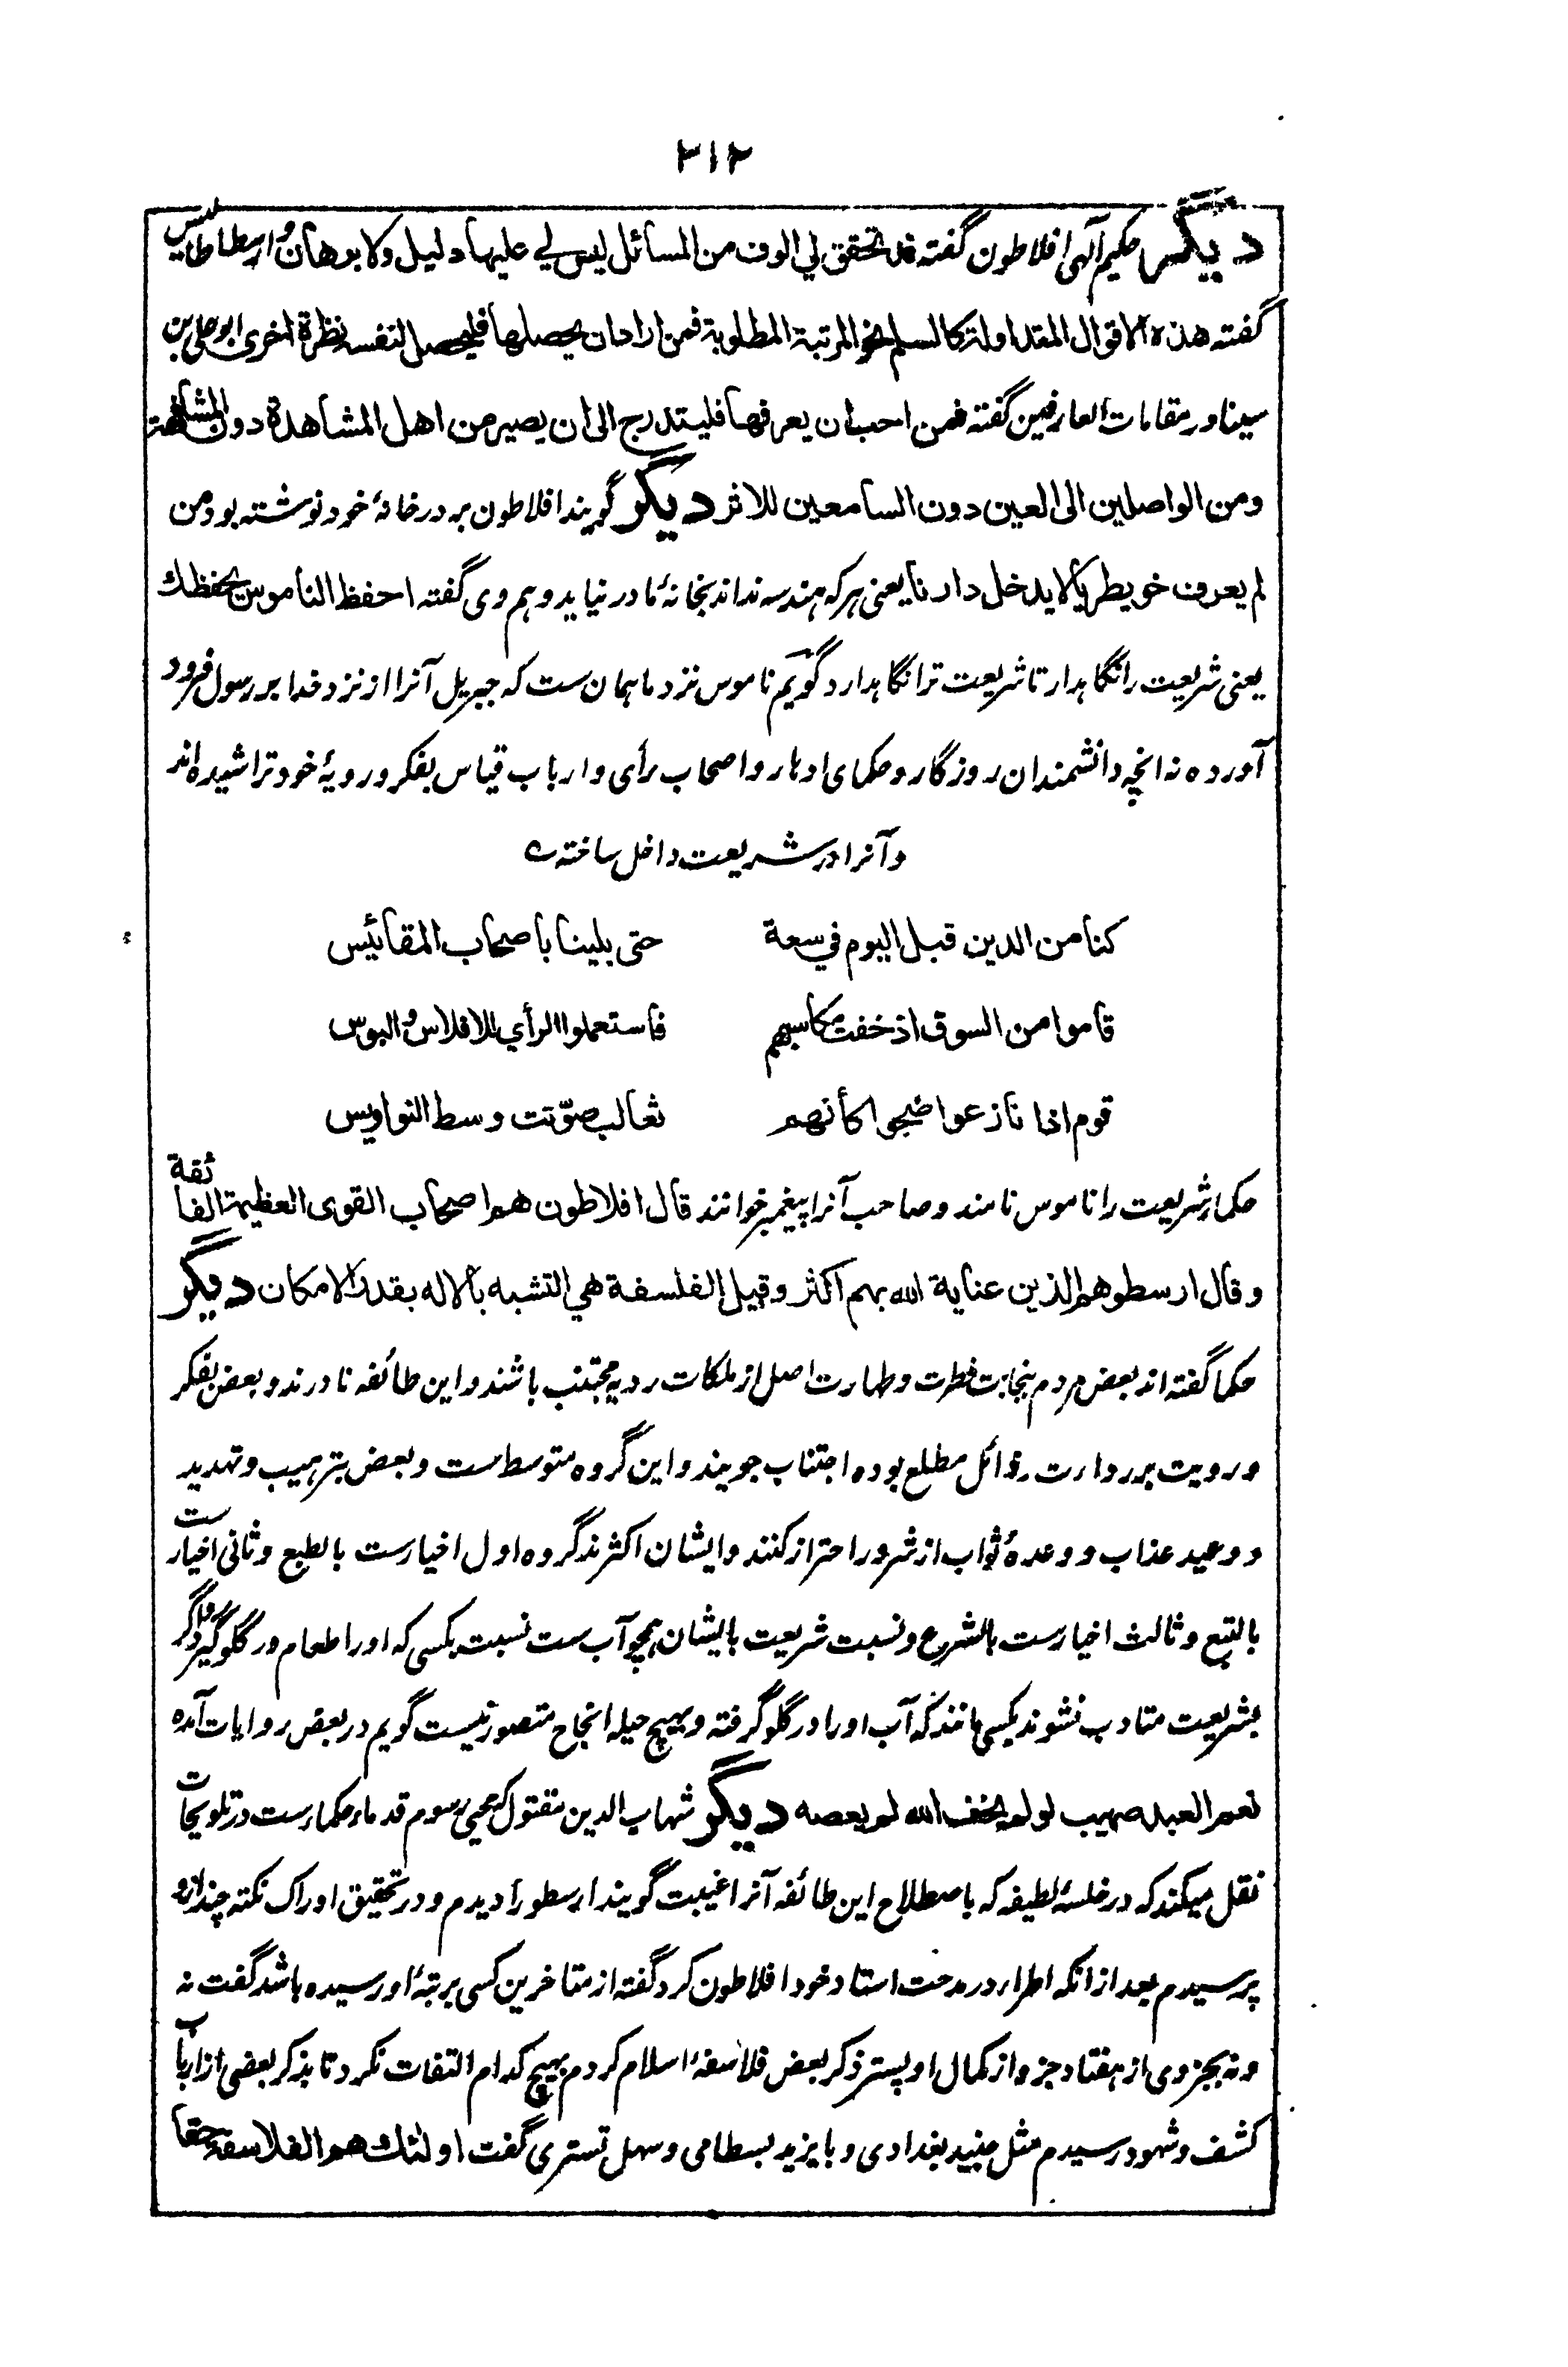 ۳۱۲
دیگر حکیم آلهی افلاطون گفته قد تحقق لي الوف من المسائل ليس لي عليها دليل ولا برهان و ارسطاطالیس
گفته هذه الاقوال المتداولة كالسلم نحو المرتبة المطلوبة فمن اراد ان يحصلها فليحصل لنفسه نظرة اخرى ابو علی بن
سینا در مقامات العارفین گفته فمن احب ان يعرفها فليتدرج الى ان يصير من اهل المشاهدة دون المشافهة
ومن الواصلين الى العين دون السامعين للاثر دیگر گویند افلاطون بر در خانهٔ خود نوشته بود من
لم يعرف خويطريا لا يدخل دارنا یعنی هر که هندسه نداند بخانهٔ ما در نیاید و هم وی گفته احفظ الناموس يحفظك
یعنی شریعت را نگاهدار تا شریعت ترا نگاهدارد گویم ناموس نزد ما همان ست که جبریل آنرا از نزد خدا بر رسول فرود
آورده نه انچه دانشمندان روزگار و حکمای ادهار و اصحاب رأی و ارباب قیاس بفکر و رویهٔ خود تراشیده اند
و آنرا در شریعت داخل ساخته ے
كنا من الدين قبل اليوم في سعة حتى بلينا باصحاب المقائيس
قاموا من السوق اذ خفت مكاسبهم فاستعملوا الرأي للافلاس والبوس
قوم اذا نازعوا ضجوا كأنهم ثعالب صوّتت وسط النواويس
حکما شریعت را ناموس نامند و صاحب آنرا پیغمبر خوانند قال افلاطون هم اصحاب القوى العظيمة الفائقة
وقال ارسطو هم الذين عناية الله بهم اكثر وقيل الفلسفة هي التشبه بالاله بقدر الامكان دیگر
حکما گفته اند بعض مردم بنجابت فطرت و طهارت اصل از ملکات ردیه مجتنب باشند و این طائفه نادرند و بعض بفکر
و رویت بر ردارت رذائل مطلع بوده اجتناب جویند و این گروه متوسط ست و بعض بترهیب و تهدید
و وعید عذاب و وعدهٔ ثواب از شرور احتراز کنند و ایشان اکثرند گروه اول اخیارست بالطبع و ثانی اخیارست
بالتبع و ثالث اخیارست بالشرع و نسبت شریعت بایشان همچو آب ست نسبت بکسی که او را طعام در گلو گیرد و اگر
بشریعت متادب نشوند بکسی مانند که آب او را در گلو گرفته و بهیچ حیله انجاح متصور نیست گویم در بعض روایات آمده
نعم العبد صهيب لو لم يخف الله لم يعصه دیگر شهاب الدین مقتول که محیی رسوم قدماء حکمارست در تلویحات
نقل میکند که در خلسهٔ لطیفه که باصطلاح این طائفه آنرا غیبت گویند ارسطو را دیدم و در تحقیق ادراک نکته چند ازو
پرسیدم بعد ازانکه اطراء در مدحت استاد خود افلاطون کرد گفته از متاخرین کسی برتبهٔ او رسیده باشد گفت نه
و نه بجزوی از هفتاد جزو از کمال او پستر ذکر بعض فلاسفهٔ اسلام کردم بهیچ کدام التفات نکرد تا بذکر بعضی از ارباب
کشف و شهود رسیدم مثل جنید بغدادی و بایزید بسطامی و سهل تستری گفت اولئك هم الفلاسفة حقا